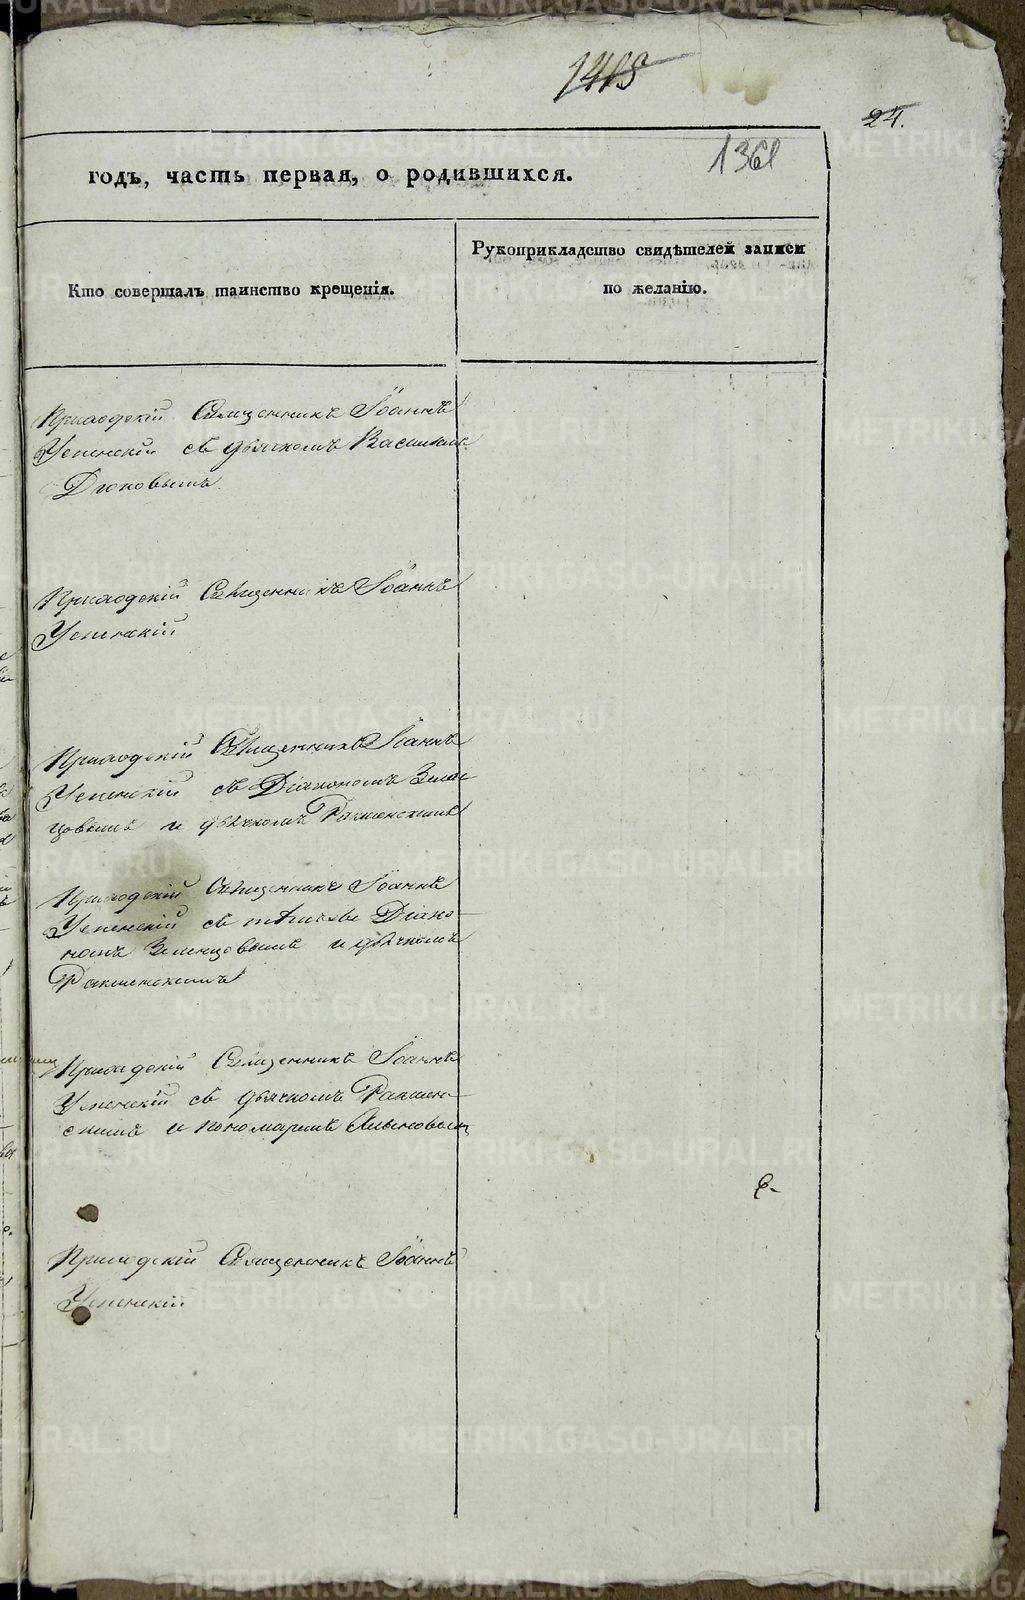 1415
24.
1361
годъ, часть первая, о родившихся.
Кто совершалъ таинство крещенія.
Рукоприкладство свидѣтелей записи
по желанію.
Приходскій Священникъ Іоаннъ
Успенскій съ дьячкомъ Василіемъ
Дюковымъ.
Приходскій Священникъ Іоаннъ
Успенскій
Приходскій Священникъ Іоаннъ
Успенскій съ Діакономъ Зелен
цовымъ и дьячкомъ
Приходскій Священникъ Іоаннъ
Успенскій съ Діако-
номъ Зеленцовымъ и дьячкомъ
Приходскій Священникъ Іоаннъ
Успенскій съ дьячкомъ
скимъ и пономаремъ
Приходскій Священникъ Іоаннъ
Успенскій
METRIKI.GASO-URAL.RU